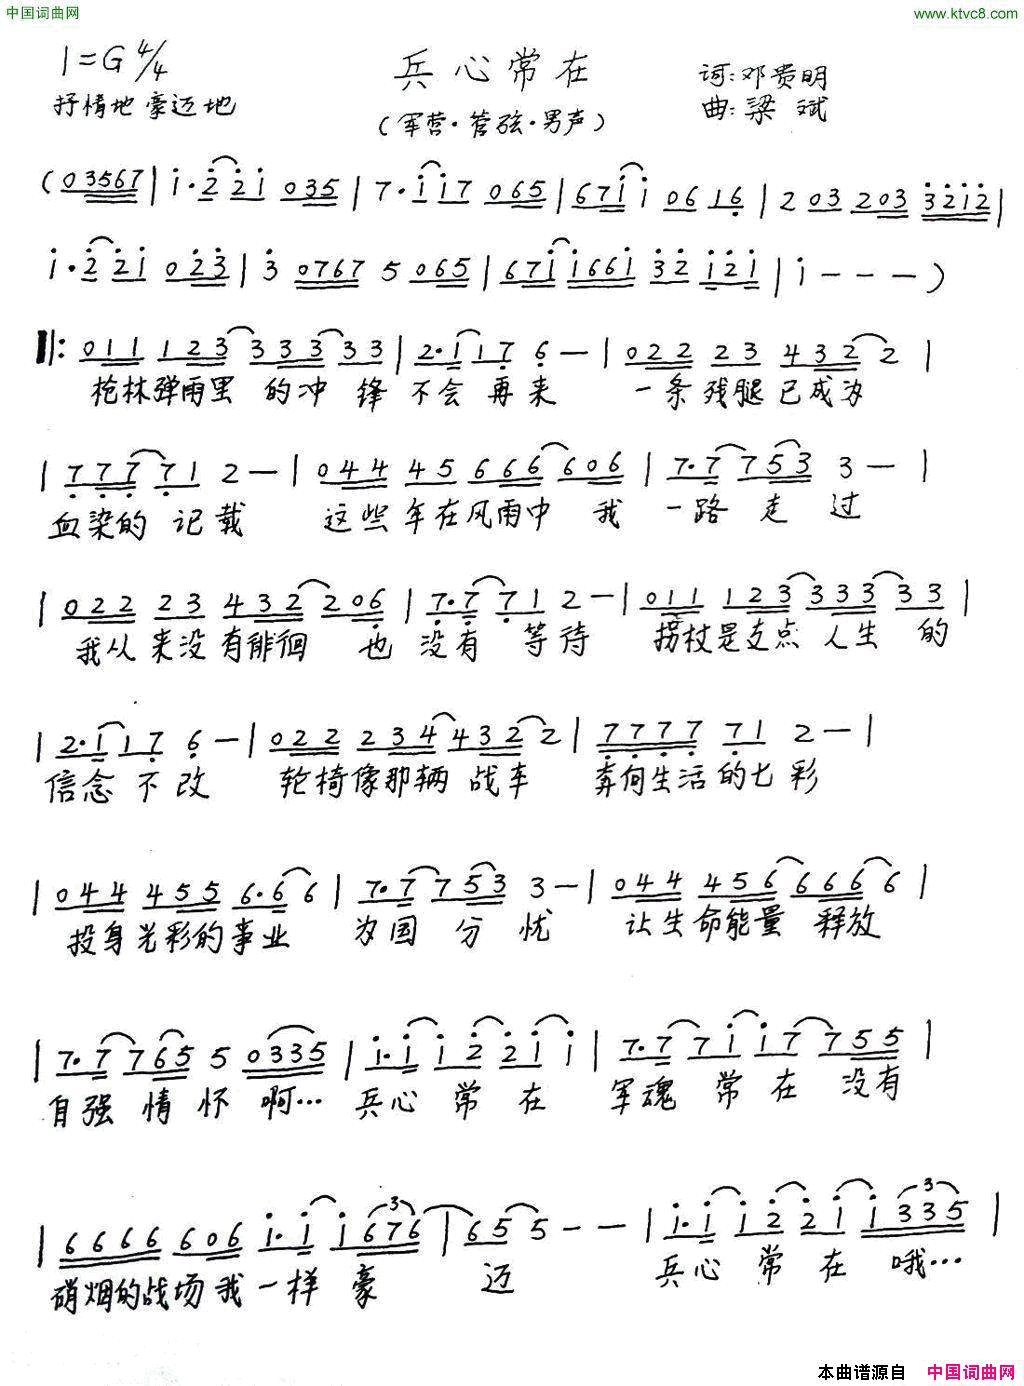 中国词曲网
www.ktvc8.com
1=G 4/4
兵心常在
词:邓贵明
抒情地 豪迈地
(军营·管弦·男声)
曲:梁 斌
(03567|i·2̇ 2̇i 035|7·i i7 065|67i i 06 16̣|2 03 203 3̇2̇i2̇|
i·2̇ 2̇i 02̇3̇|3̇ 0767 5 065|67i i66i 3̇2̇ i2̇i|i - - -)
‖:011 123 333 33|2·1 17̣ 6̣ -|022 23 432 2|
枪林弹雨里 的冲 锋 不会 再来 一条残腿已成为
|7̣7̣7̣ 7̣1 2 -|044 45 666 606|7·7 753 3 -|
血染的 记载 这些年在风雨中 我 一路 走 过
|022 23 432 206̣|7̣·7̣ 7̣1 2 -|011 123 333 33|
我从来没有徘徊 也 没有 等待 拐杖是支点 人生 的
|2·1 17̣ 6̣ -|022 234 432 2|7̣7̣7̣7̣ 7̣1 2 -|
信念 不改 轮椅像那辆 战车 奔向生活的七彩
|044 455 6·6 6|7·7 753 3 -|044 456 666 6|
投身光彩的事业 为国 分 忧 让生命能量 释放
|7·7 765 5 0335|i·i i2̇ 2̇i i|7·7 7i i7 755|
自强 情 怀 啊… 兵心 常 在 军魂 常 在 没有
|6666 606 i·i i676|65 5 - -|i·i i2̇ 2̇i i335|
硝烟的战场我一样 豪 迈 兵心 常 在 哦…
本曲谱源自 中国词曲网